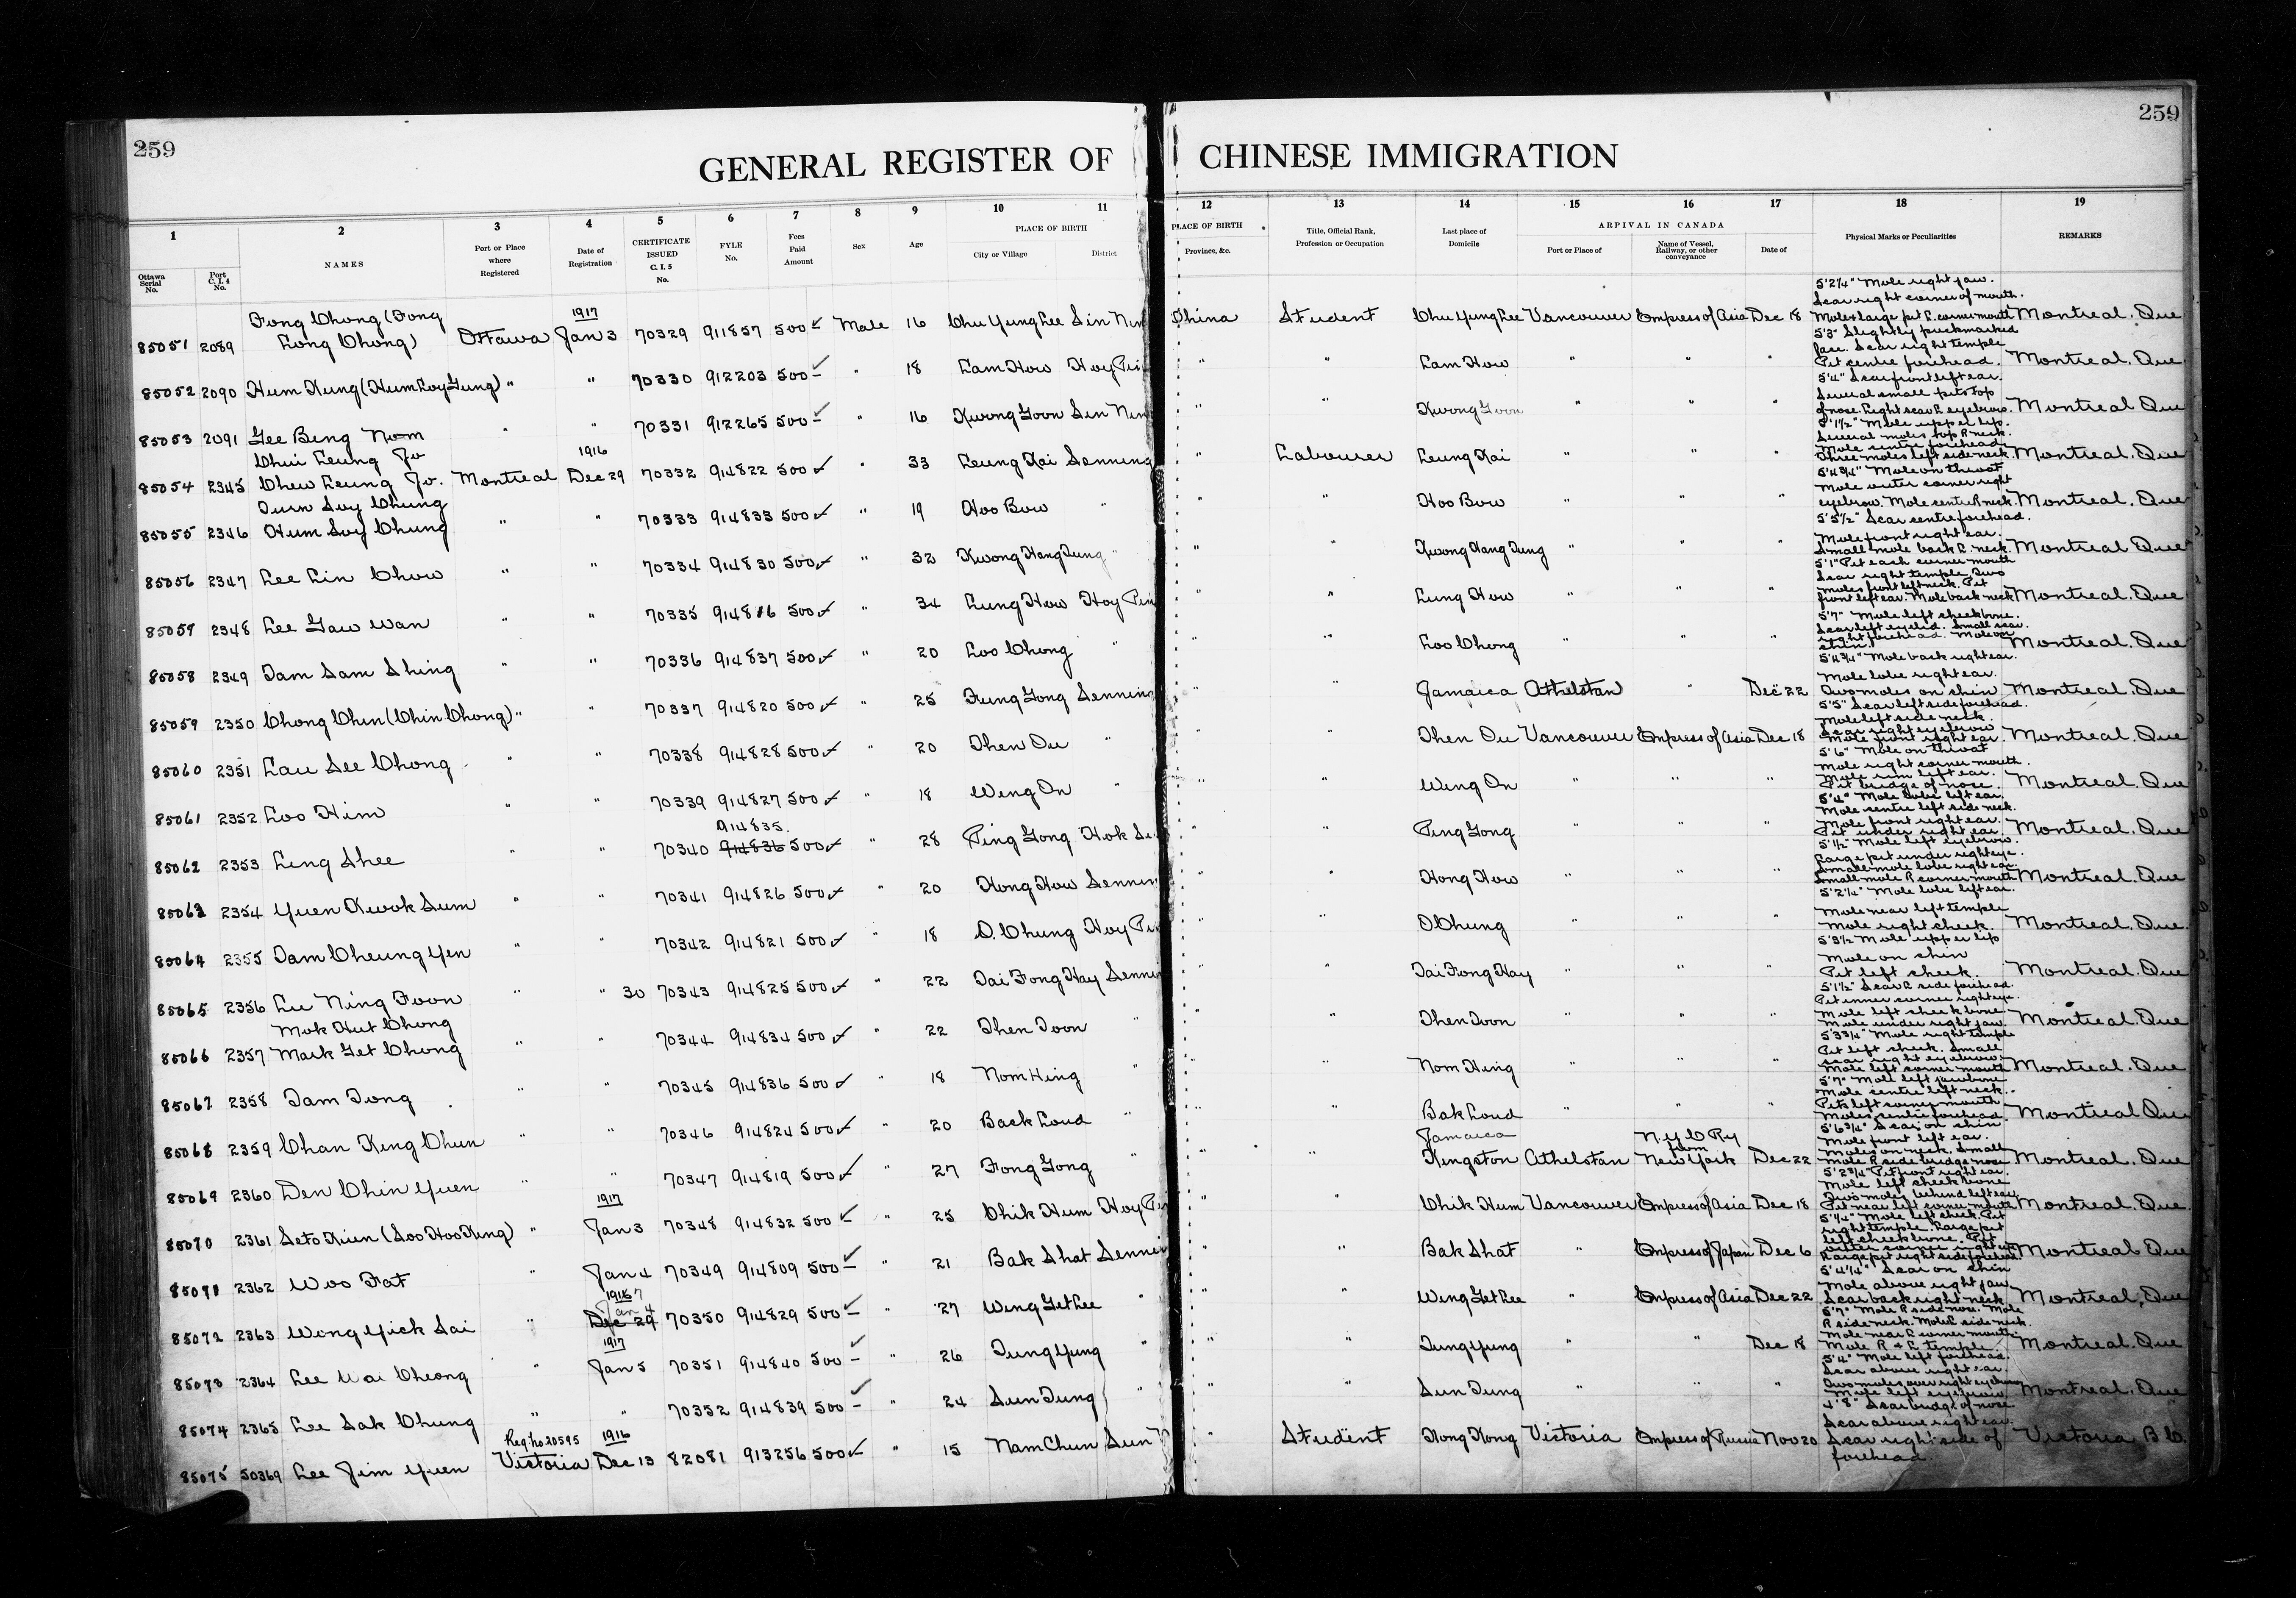 259
259
GENERAL REGISTER OF CHINESE IMMIGRATION
1 2 3 4 5 6 7 8 9 10 11 12 13 14 15 16 17 18 19
Ottawa Serial No.
Port C.I.4 No.
NAMES
Port or Place where Registered
Date of Registration
CERTIFICATE ISSUED C.I.5 No.
FYLE No.
Fees Paid Amount
Sex
Age
PLACE OF BIRTH
City or Village
District
PLACE OF BIRTH
Province, &c.
Title, Official Rank, Profession or Occupation
Last place of Domicile
ARRIVAL IN CANADA
Port or Place of
Name of Vessel, Railway, or other conveyance
Date of
Physical Marks or Peculiarities
REMARKS
85051 2089 Fong Chong (Fong Long Chong) Ottawa 1917 Jan 3 70329 911857 500 Male 16 Chu Yung Lee Sin Nin China Student Chu Yung Lee Vancouver Empress of Asia Dec 18 5'2¼" Mole right jaw. Scar right corner of mouth. Montreal. Que
85052 2090 Hum Kung (Hum Loy Gung) " " 70330 912203 500 " 18 Lam How Hoy Pin " " Lam How " " " 5'3" Slightly puckmarked face. Scar right temple Pit centre forehead. Montreal. Que
85053 2091 Gee Bing Nom " " 70331 912265 500 " 16 Kwong Goon Sin Nin " " Kwong Goon " " " 5'4" Scar front left ear. Several small pits top of nose. Montreal Que
85054 2345 Chui Leung Jo Chew Leung Jo. Montreal 1916 Dec 29 70332 914822 500 " 33 Leung Kai Senning " Labourer Leung Kai " " " 5'1½" Mole upper lip. Several moles top R neck. Mole centre forehead. Three moles left side neck. Montreal. Que
85055 2346 Turn Suy Chung Hum Suy Chung " " 70333 914833 500 " 19 Hoo Bow " " " Hoo Bow " " " 5'4¾" Mole on throat Mole outer corner right eyebrow. Mole centre R neck Montreal. Que
85056 2347 Lee Lin Chow " " 70334 914830 500 " 32 Kwong Hang Tung " " " Kwong Hang Tung " " " 5'5½" Scar centre forehead. Mole front right ear. Small mole back R. neck. Montreal Que
85057 2348 Lee Gaw Wan " " 70335 914816 500 " 34 Lung How Hoy Pin " " Lung How " " " 5'1" Pit each corner mouth Scar right temple. Two moles front left neck. Pit front left ear. Mole back neck Montreal. Que
85058 2349 Tam Sam Shing " " 70336 914837 500 " 20 Loo Chong " " " Loo Chong " " " 5'7" Mole left cheekbone. Scar left eyelid. Small scar right forehead. Mole on chin. Montreal. Que
85059 2350 Chong Chin (Chin Chong) " " 70337 914820 500 " 25 Fung Gong Senning " " Jamaica Athelstan " Dec 22 5'4¾" Mole back right ear. Mole lobe right ear. Two moles on chin Montreal. Que
85060 2351 Lau See Chong " " 70338 914828 500 " 20 Shen Du " " " Shen Du Vancouver Empress of Asia Dec 18 5'5" Scar left side forehead. Mole left side neck. Scar right eyebrow Mole front right ear. Montreal. Que
85061 2352 Loo Him " " 70339 914827 500 " 18 Wing On " " " Wing On " " " 5'6" Mole on throat Mole right corner mouth. Mole rim left ear. Pit bridge of nose. Montreal. Que
85062 2353 Leng Shee " " 70340 914835. 914836 500 " 28 Ping Gong Hok " " Ping Gong " " " 5'4" Mole lobe left ear. Mole centre left side neck. Mole front right ear. Pit under right ear. Montreal. Que
85063 2354 Yuen Kwok Sum " " 70341 914826 500 " 20 Hong How Sennin " " Hong How " " " 5'1½" Mole left eyebrow. Large pit under right eye. Small mole lobe right ear. Small mole R corner mouth Montreal. Que
85064 2355 Tam Cheung Yen " " 70342 914821 500 " 18 O. Chung Hoy Pin " " O Chung " " " 5'2¼" Mole lobe left ear. Mole near left temple Mole right cheek. Montreal. Que.
85065 2356 Lu Ning Foon " " 30 70343 914825 500 " 22 Tai Fong Hay Sennin " " Tai Fong Hay " " " 5'3½ Mole upper lip Mole on chin Pit left cheek. Montreal. Que
85066 2357 Mok Hut Chong Mark Get Chong " " 70344 914834 500 " 22 Shen Toon " " " Shen Toon " " " 5'1½" Scar R side forehead. Pit inner corner right eye. Mole left cheek bone Mole under right jaw Montreal. Que
85067 2358 Tam Tong " " 70345 914836 500 " 18 Nom Hing " " " Nom Hing " " " 5'3¾" Mole right temple Pit left cheek. Small scar right eyebrow. Mole left corner mouth Montreal. Que
85068 2359 Chan King Chun " " 70346 914824 500 " 20 Back Loud " " " Bak Loud " " " 5'7" Mole left jawbone Mole centre left neck. Pits left corner mouth Moles centre forehead Montreal Que
85069 2360 Den Chin Yuen " " 70347 914819 500 " 27 Fong Gong " " " Jamaica Kingston Athelstan N.Y.C Ry from New York Dec 22 5'6¾" Scar on chin Mole front left ear. Moles on neck. Small mole R side bridge nose Montreal. Que
85070 2361 Seto Kuen (Soo Hoo King) " 1917 Jan 3 70348 914832 500 " 25 Chik Hum Hoy Pin " " Chik Hum Vancouver Empress of Asia Dec 18 5'2¾" Pit front right ear. Mole left cheek bone Two moles behind left ear Pit near left corner mouth Montreal. Que.
85071 2362 Woo Fat " Jan 4 70349 914809 500 " 21 Bak Shat Sennin " " Bak Shat " Empress of Japan Dec 6 5'¼" Mole left cheek. Pit right temple. Large pit left cheek bone. Pit outer corner right eye Large pit right side forehead. Montreal Que
85072 2363 Wong Yick Sai " 1917 Jan 4 Dec 29 70350 914829 500 " 27 Wing Get Lee " " " Wing Get Lee " Empress of Asia Dec 22 5'4¼" Scar on chin Mole above right jaw Scar back right neck Montreal, Que
85073 2364 Lee Wai Cheong " 1917 Jan 5 70351 914840 500 " 26 Tung Yung " " " Tung Yung " " Dec 18 5'7" Mole R side nose. Mole R side neck. Mole L side neck. Mole near L corner mouth Mole R & L temple. Montreal. Que
85074 2365 Lee Sak Chung " " 70352 914839 500 " 24 Sun Tung " " " Sun Tung " " " 5'4" Mole left forehead. Scar above right ear. Two moles over right eyebrow Mole left eyebrow. Montreal. Que
85075 50369 Lee Jim Yuen Reg. No 20595 Victoria 1916 Dec 13 82081 913256 500 " 15 Nam Chun Sun " Student Hong Kong Victoria Empress of Russia Nov 20 4'8" Scar bridge of nose Scar above right ear. Scar right side of forehead. Victoria B C